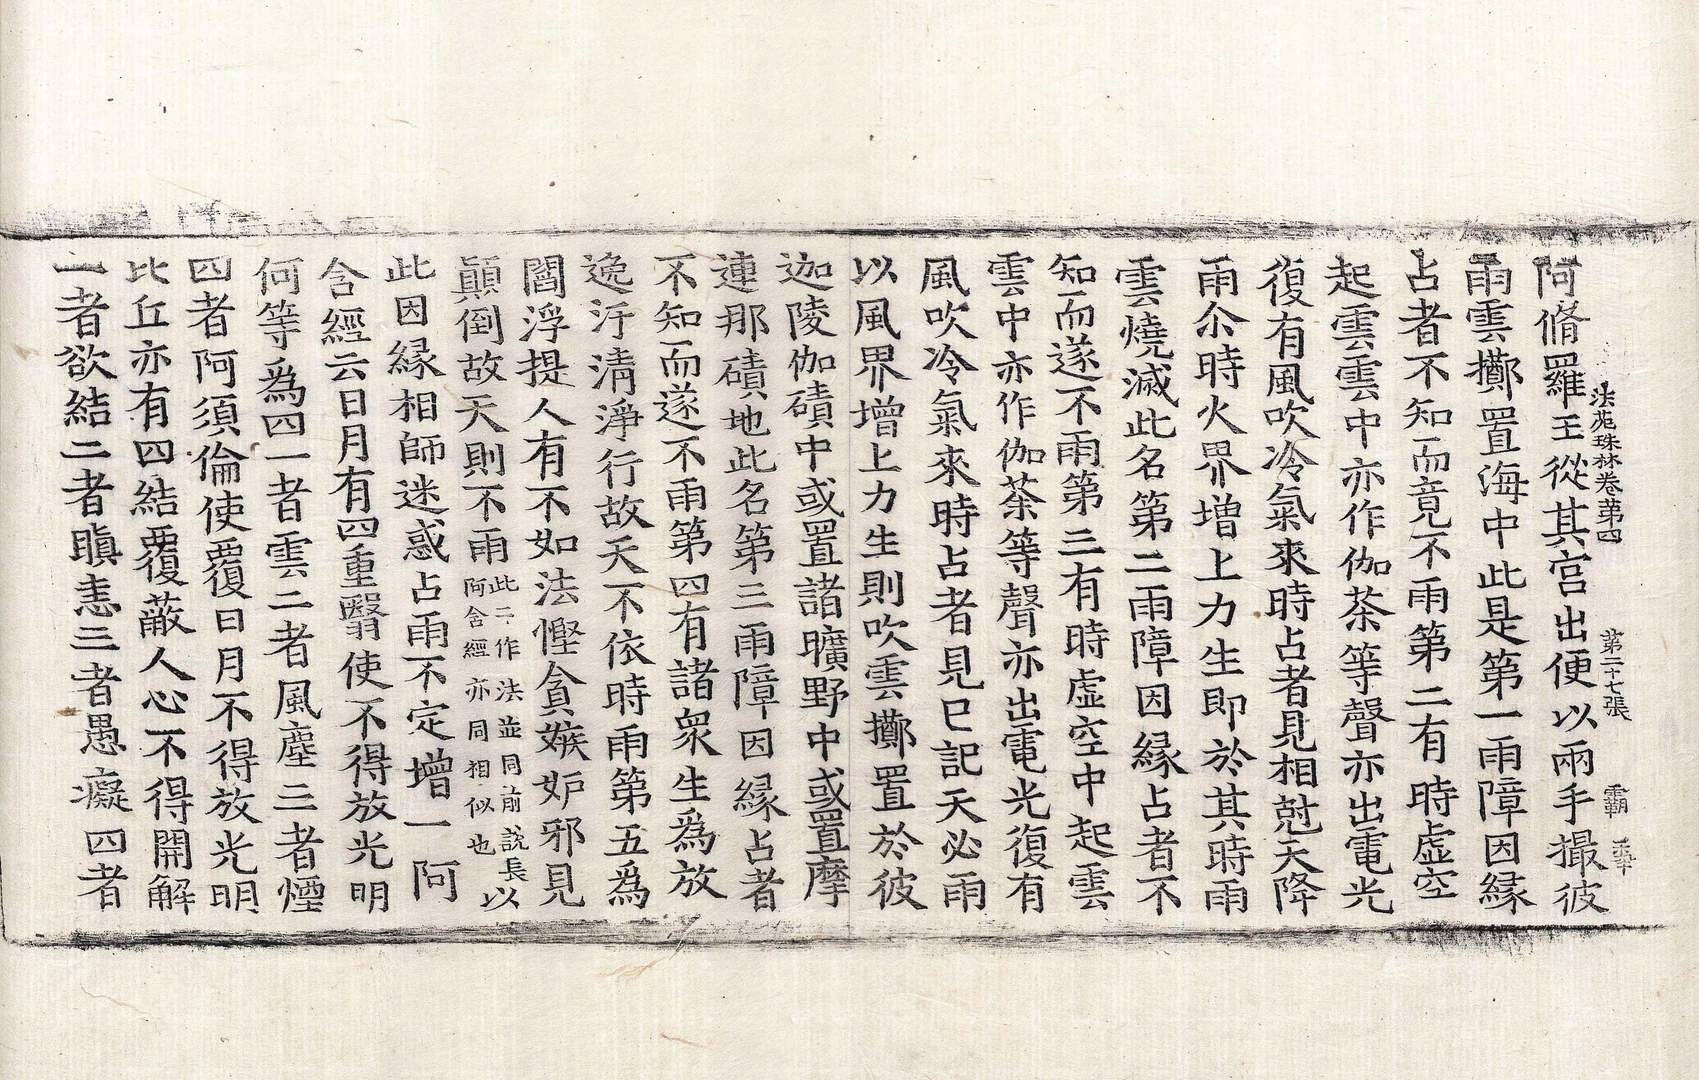 法苑珠林卷第四 第二十七張 霸
阿脩羅王從其宮出便以兩手撮彼
雨雲擲置海中此是第一雨障因緣
占者不知而竟不雨第二有時虛空
起雲雲中亦作伽茶等聲亦出電光
復有風吹冷氣來時占者見相尅天降
雨尒時火界增上力生即於其時雨
雲燒滅此名第二雨障因緣占者不
知而遂不雨第三有時虛空中起雲
雲中亦作伽茶等聲亦出電光復有
風吹冷氣來時占者見已記天必雨
以風界增上力生則吹雲擲置於彼
迦陵伽磧中或置諸曠野中或置摩
連那磧地此名第三雨障因緣占者
不知而遂不雨第四有諸衆生為放
逸汙清淨行故天不依時雨第五為
閻浮提人有不如法慳貪嫉妒邪見
顛倒故天則不雨此二作法並同前說長阿含經亦同相似也以
此因緣相師迷惑占雨不定增一阿
含經云日月有四重翳使不得放光明
何等為四一者雲二者風塵三者煙
四者阿須倫使覆日月不得放光明
比丘亦有四結覆蔽人心不得開解
一者欲結二者瞋恚三者愚癡四者